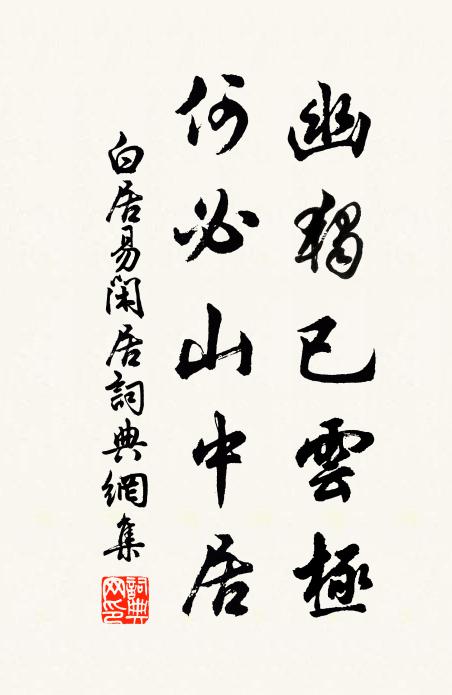 幽獨已雲極
何必山中居
白居易閑居詞典網集
詞典網印